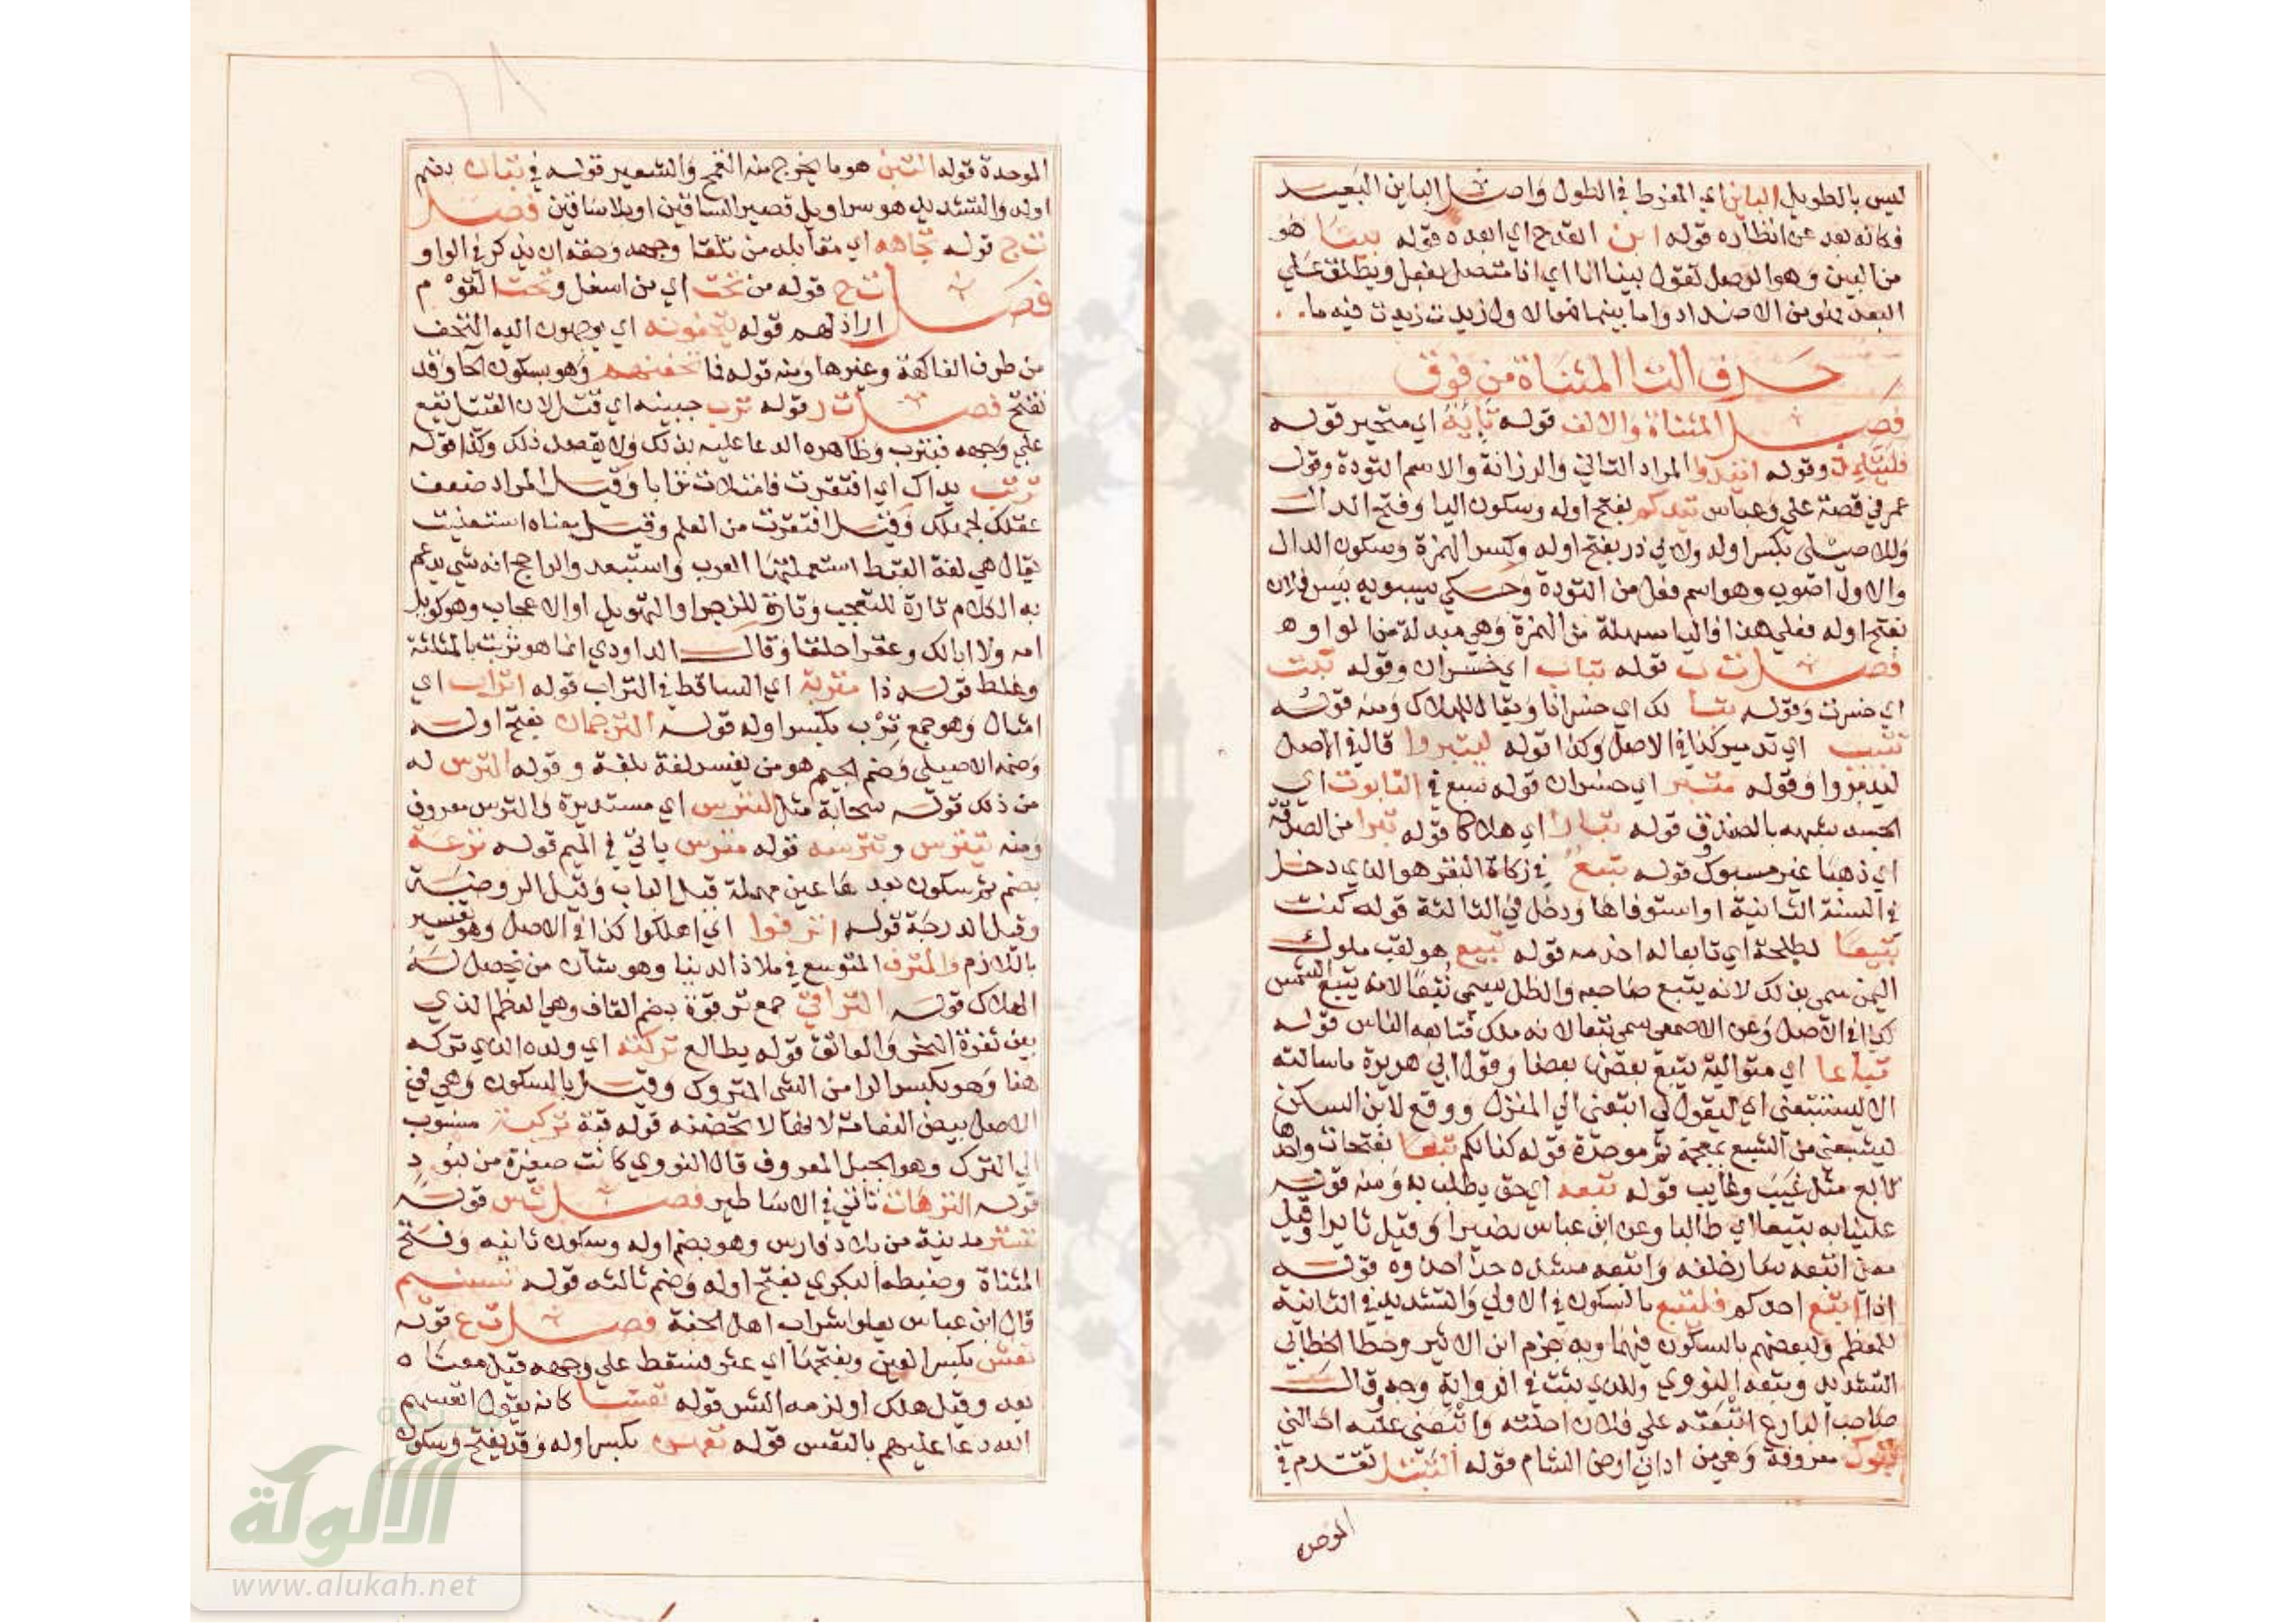 ليس بالطويل الباين اي المفرط في الطول واصل الباين البعيد
فكانه بعد عن انظاره قوله ابن القدح اي ابعده قوله بينا هو
من البين وهو الوصل تقول بينا انا اي انا متصل بفعل ويطلق علي
البعد فهو من الاضداد واما بينما فمالاول زيدت فيه ما
حرف التا المثناة من فوق
فصل المثناة والالف قوله تايه اي متحير قوله
فليتئد وقوله اتئدوا المراد التاني والرزانة والاسم التودة وقول
عمر في قصة علي وعباس تيدكم بفتح اوله وسكون اليا وفتح الدال
وللاصيلي بكسر اوله ولابي ذر بفتح اوله وكسر الهمزة وسكون الدال
والاول اصوب وهو اسم فعل من التودة وحكي سيبويه بيس فلان
بفتح اوله فعلي هذا فاليا سهلة من الهمزة وهي مبدلة من الواو ه
فصل ت ب قوله تباب اي خسران وقوله تبت
اي خسرت وقوله تبا لك اي خسرانا ويقال للهلاك ومنه قوله
تتبيب اي تدمير كذا في الاصل وكذا قوله ليتبروا قال في الاصل
ليدمروا وقوله متبر اي خسران قوله سبع في التابوت اي
الجسد شبهه بالصندوق قوله تبارا اي هلاكا قوله تبرا من الصدقة
اي ذهبا غير مسبوك قوله تبيع في زكاة البقر هو الذي دخل
في السنة الثانية او استوفاها ودخل في الثالثة قوله كنت
تبيعا لطلحة اي تابعا له اخدمه قوله تبع هو لقب ملوك
اليمن سمي بذلك لانه يتبع صاحبه والظل يسمي تبعا لانه يتبع الشمس
كذا في الاصل وعن الاصمعي سمي تبعا لانه ملك فتابعه الناس قوله
تباعا اي متوالية يتبع بعضها بعضا وقول ابي هريرة ما سالته
الا ليستتبعني اي ليقول لي اتبعني الي المنزل ووقع لابن السكن
ليشبعني من الشبع بمعجمة ثم موحدة قوله كنا لكم تبعا بفتحات واحدها
تابع مثل غيب وغايب قوله تبعه اي حق يطلب به ومنه قوله
علينا به تبيعا اي طالبا وعن ابن عباس نصيرا وقيل ثايرا وقيل
معن اتبعه سار خلفه واتبعه مشدده حذا حذوه قوله
اذا اتبع احدكم فليتبع بالسكون في الاولي والتشديد في الثانية
للمعظم ولبعضهم بالسكون فيهما وبه جزم ابن الاثير وخطا الخطابي
التشديد وتبعه النووي وللذي يثبت في الرواية وجه وقال
صاحب البارع اتبعته علي فلان احلته واتبعني عليه احالني
تبوك معروفة وهي من اداني ارض الشام قوله التبتل تقدم في
الموحده
الموحدة قوله التبن هو ما يخرج منه القمح والشعير قوله في تبان بضم
اوله والتشديد هو سراويل قصير الساقين او بلا ساقين فصل
ت ج قوله تجاهه اي مقابله من تلقا وجهه وحقه ان يذكر في الواو
فصل ت ح قوله من تحت اي من اسفل وتحت القوم
اراذلهم قوله يتحفونه اي يوجهون اليه التحف
من طرف الفاكهة وغيرها ومنه قوله فما تحفتهم وهو بسكون الحا وقد
تفتح فصل ت ر قوله ترب جبينه اي قتل لان القتيل يقع
علي وجهه فيترب وظاهره الدعا عليه بذلك ولا يقصد ذلك وكذا قوله
تربت يداك اي افتقرت فامتلات ترابا وقيل المراد ضعف
عقلك لجهلك وقيل افتقرت من العلم وقيل معناه استغنيت
يقال هي لغة القبط استعملتها العرب واستبعد والراجح انه شي يدعم
به الكلام تارة للتعجب وتارة للزجر او التهويل او الاعجاب وهو كويل
امه ولا ابا لك وعقرا حلقا وقال الداودي انما هو ثربت بالمثلثة
وغلط قوله ذا متربة اي الساقط في التراب قوله اتراب اي
امثال وهو جمع ترب بكسر اوله قوله الترجمان بفتح اوله
وضمه الاصيلي وضم الجيم هو من يفسر لغة بلغة وقوله الترس له
من ذلك قوله سحابة مثل الترس اي مستديرة والترس معروف
ومنه تيترس وتترسه قوله مترس ياتي في الميم قوله ترعة
بضم ثم سكون بعدها عين مهملة قيل الباب وقيل الروضة
وقيل الدرجة قوله اترفوا اي اهلكوا كذا في الاصل وهو تفسير
باللازم والمترف المتوسع في ملاذ الدنيا وهو شان من يحصل له
الهلاك قوله التراقي جمع ترقوة بضم القاف وهي العظم الذي
بين ثغرة النحر والعاتق قوله يطالع تركته اي ولده الذي تركه
هنا وهو بكسر الرا من الشي المتروك وقيل بالسكون وهي في
الاصل بيض النعامة لانها لا تحضنه قوله قبة تركية منسوب
الي الترك وهو الجبل المعروف قال النووي كانت صغيرة من لبود
قوله الترهات تاتي في الاساطير فصل ت س قوله
تستر مدينة من بلاد فارس وهو بضم اوله وسكون ثانيه وفتح
المثناة وضبطه البكري بفتح اوله وضم ثالثه قوله تسنيم
قال ابن عباس يعلوا شراب اهل الجنة فصل ت ع قوله
تعس بكسر العين وبفتحها اي عثر فسقط علي وجهه قيل معناه
بعد وقيل هلك او لزمه الشر قوله تعسا كانه يقول اتعسهم
الله دعا عليهم بالتعس قوله تعهن بكسر اوله وقد يفتح وسكون
الألوكة
www.alukah.net